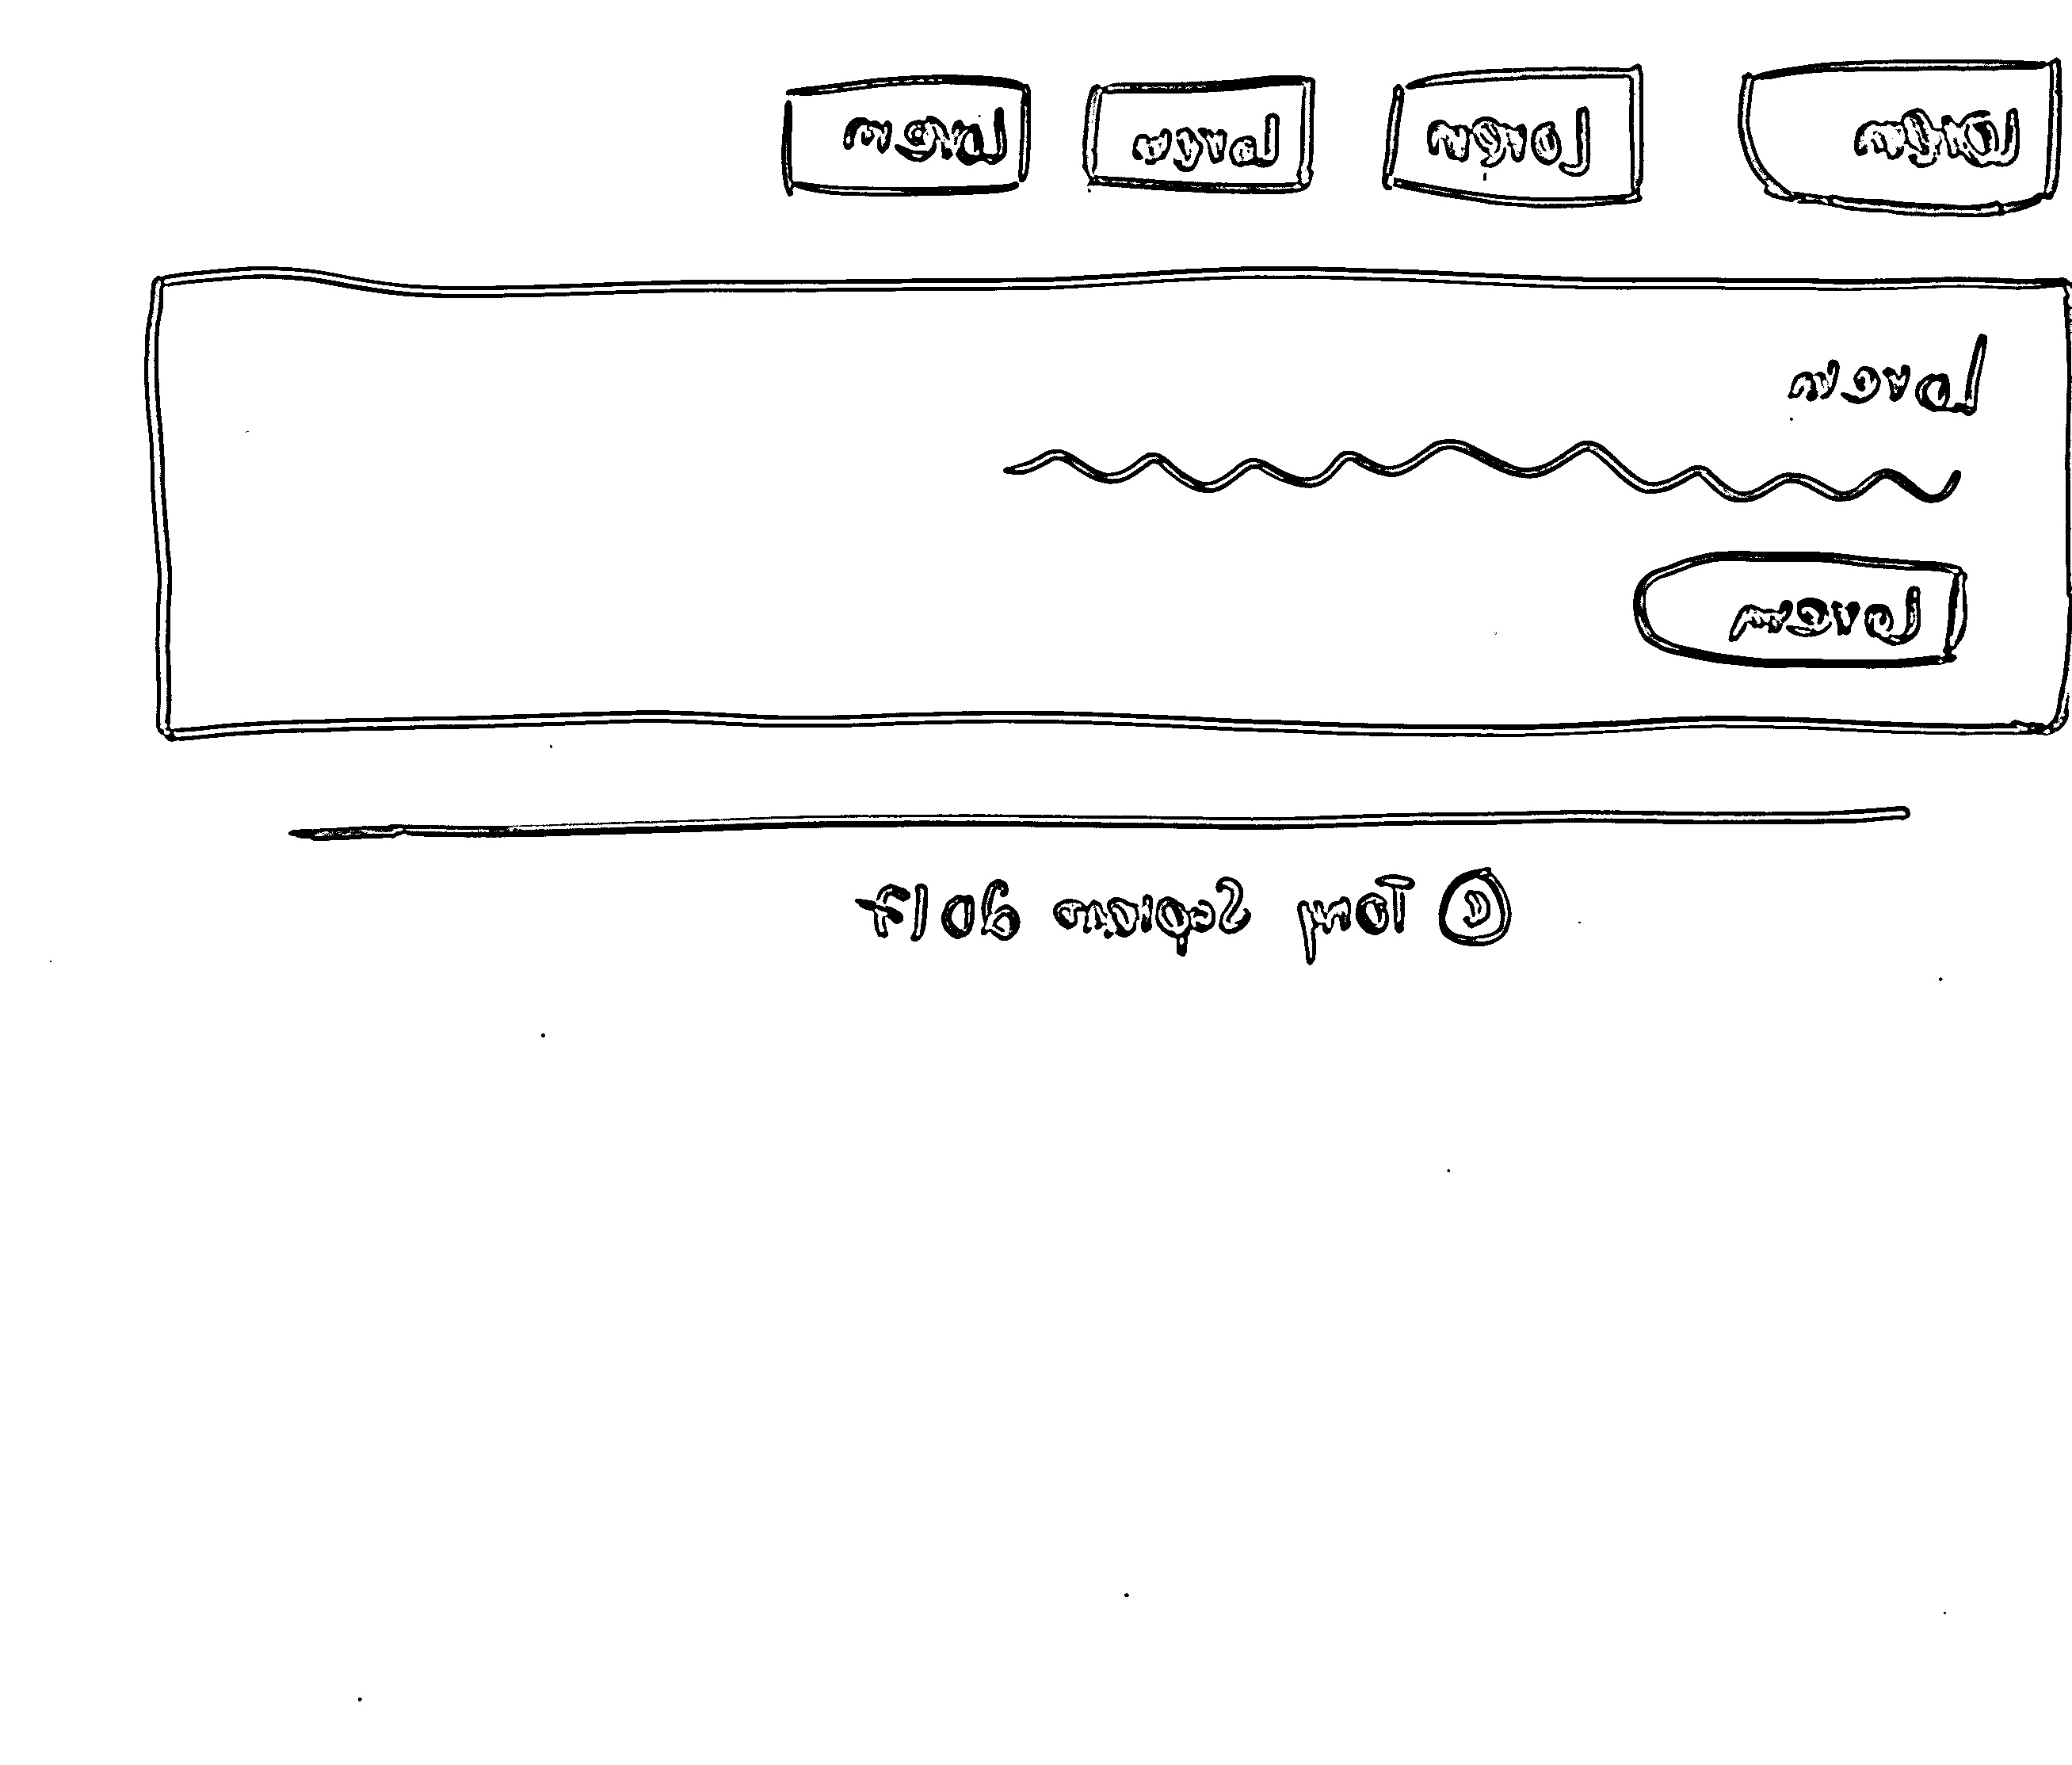 Lorem Lorem Lorem Lorem
Lorem
Lorem
© Tony 2017